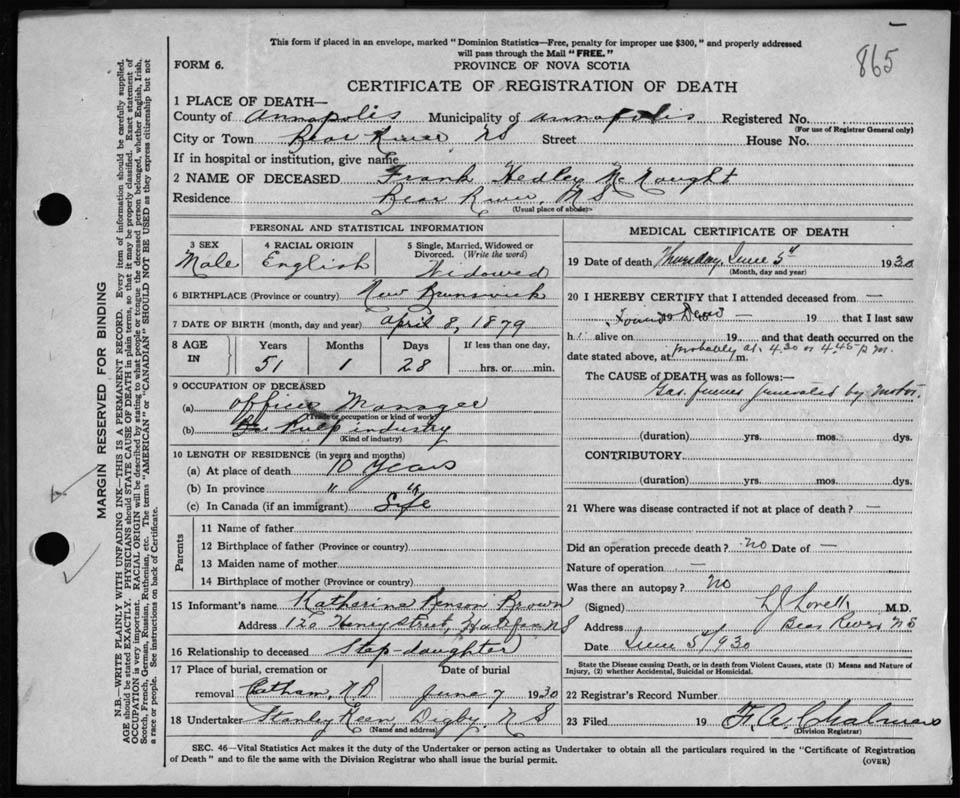 865
This form if placed in an envelope, marked "Dominion Statistics—Free, penalty for improper use $300," and properly addressed
will pass through the Mail "FREE."
FORM 6.
PROVINCE OF NOVA SCOTIA
CERTIFICATE OF REGISTRATION OF DEATH
1 PLACE OF DEATH—
County of Annapolis Municipality of Annapolis Registered No.
(For use of Registrar General only)
City or Town Bear River NS Street House No.
If in hospital or institution, give name
2 NAME OF DECEASED Frank Hedley McNaught
Residence Bear River, NS
(Usual place of abode)
PERSONAL AND STATISTICAL INFORMATION
3 SEX 4 RACIAL ORIGIN 5 Single, Married, Widowed or
Divorced. (Write the word)
Male English Widowed
6 BIRTHPLACE (Province or country) New Brunswick
7 DATE OF BIRTH (month, day and year) April 8, 1879
8 AGE IN Years Months Days If less than one day,
51 1 28 hrs. or min.
9 OCCUPATION OF DECEASED
(a) Office Manager
(Trade or occupation or kind of work)
(b) Pulp industry
(Kind of industry)
10 LENGTH OF RESIDENCE (in years and months)
(a) At place of death 10 years
(b) In province " "
(c) In Canada (if an immigrant) Life
Parents
11 Name of father
12 Birthplace of father (Province or country)
13 Maiden name of mother
14 Birthplace of mother (Province or country)
15 Informant's name Katherine Benson Brown
Address 120 Henry Street, Halifax NS
16 Relationship to deceased Step-daughter
17 Place of burial, cremation or Date of burial
removal Catham, N.B June 7 1930
18 Undertaker Stanley Keen, Digby, NS
(Name and address)
MEDICAL CERTIFICATE OF DEATH
19 Date of death Thursday, June 5th 1930
(Month, day and year)
20 I HEREBY CERTIFY that I attended deceased from —
Found Dead — 19 that I last saw
h alive on 19 — and that death occurred on the
date stated above, at probably at 4.30 or 4.45 P.M. m.
The CAUSE OF DEATH was as follows:—
Gas fumes generated by motor.
(duration) yrs. mos. dys.
CONTRIBUTORY
(duration) yrs. mos. dys.
21 Where was disease contracted if not at place of death? —
Did an operation precede death? No Date of —
Nature of operation —
Was there an autopsy? No
(Signed) Lovett M.D.
Address Bear River NS
Date June 5th/930
State the Disease causing Death, or in death from Violent Causes, state (1) Means and Nature of
Injury, (2) whether Accidental, Suicidal or Homicidal.
22 Registrar's Record Number
23 Filed 19 F. A. Chalmers
(Division Registrar)
SEC. 46—Vital Statistics Act makes it the duty of the Undertaker or person acting as Undertaker to obtain all the particulars required in the "Certificate of Registration
of Death" and to file the same with the Division Registrar who shall issue the burial permit.
(OVER)
MARGIN RESERVED FOR BINDING
N.B.—WRITE PLAINLY WITH UNFADING INK—THIS IS A PERMANENT RECORD. Every item of information should be carefully supplied.
AGE should be stated EXACTLY. PHYSICIANS should STATE CAUSE OF DEATH in plain terms, so that it may be properly classified. Exact statement of
OCCUPATION is very important. RACIAL ORIGIN will be described by stating to what people or tongue the deceased person belonged, whether English, Irish,
Scotch, French, German, Russian, Ruthenian, etc. The terms "AMERICAN" or "CANADIAN" SHOULD NOT BE USED as they express citizenship but not
a race or people. See instructions on back of Certificate.